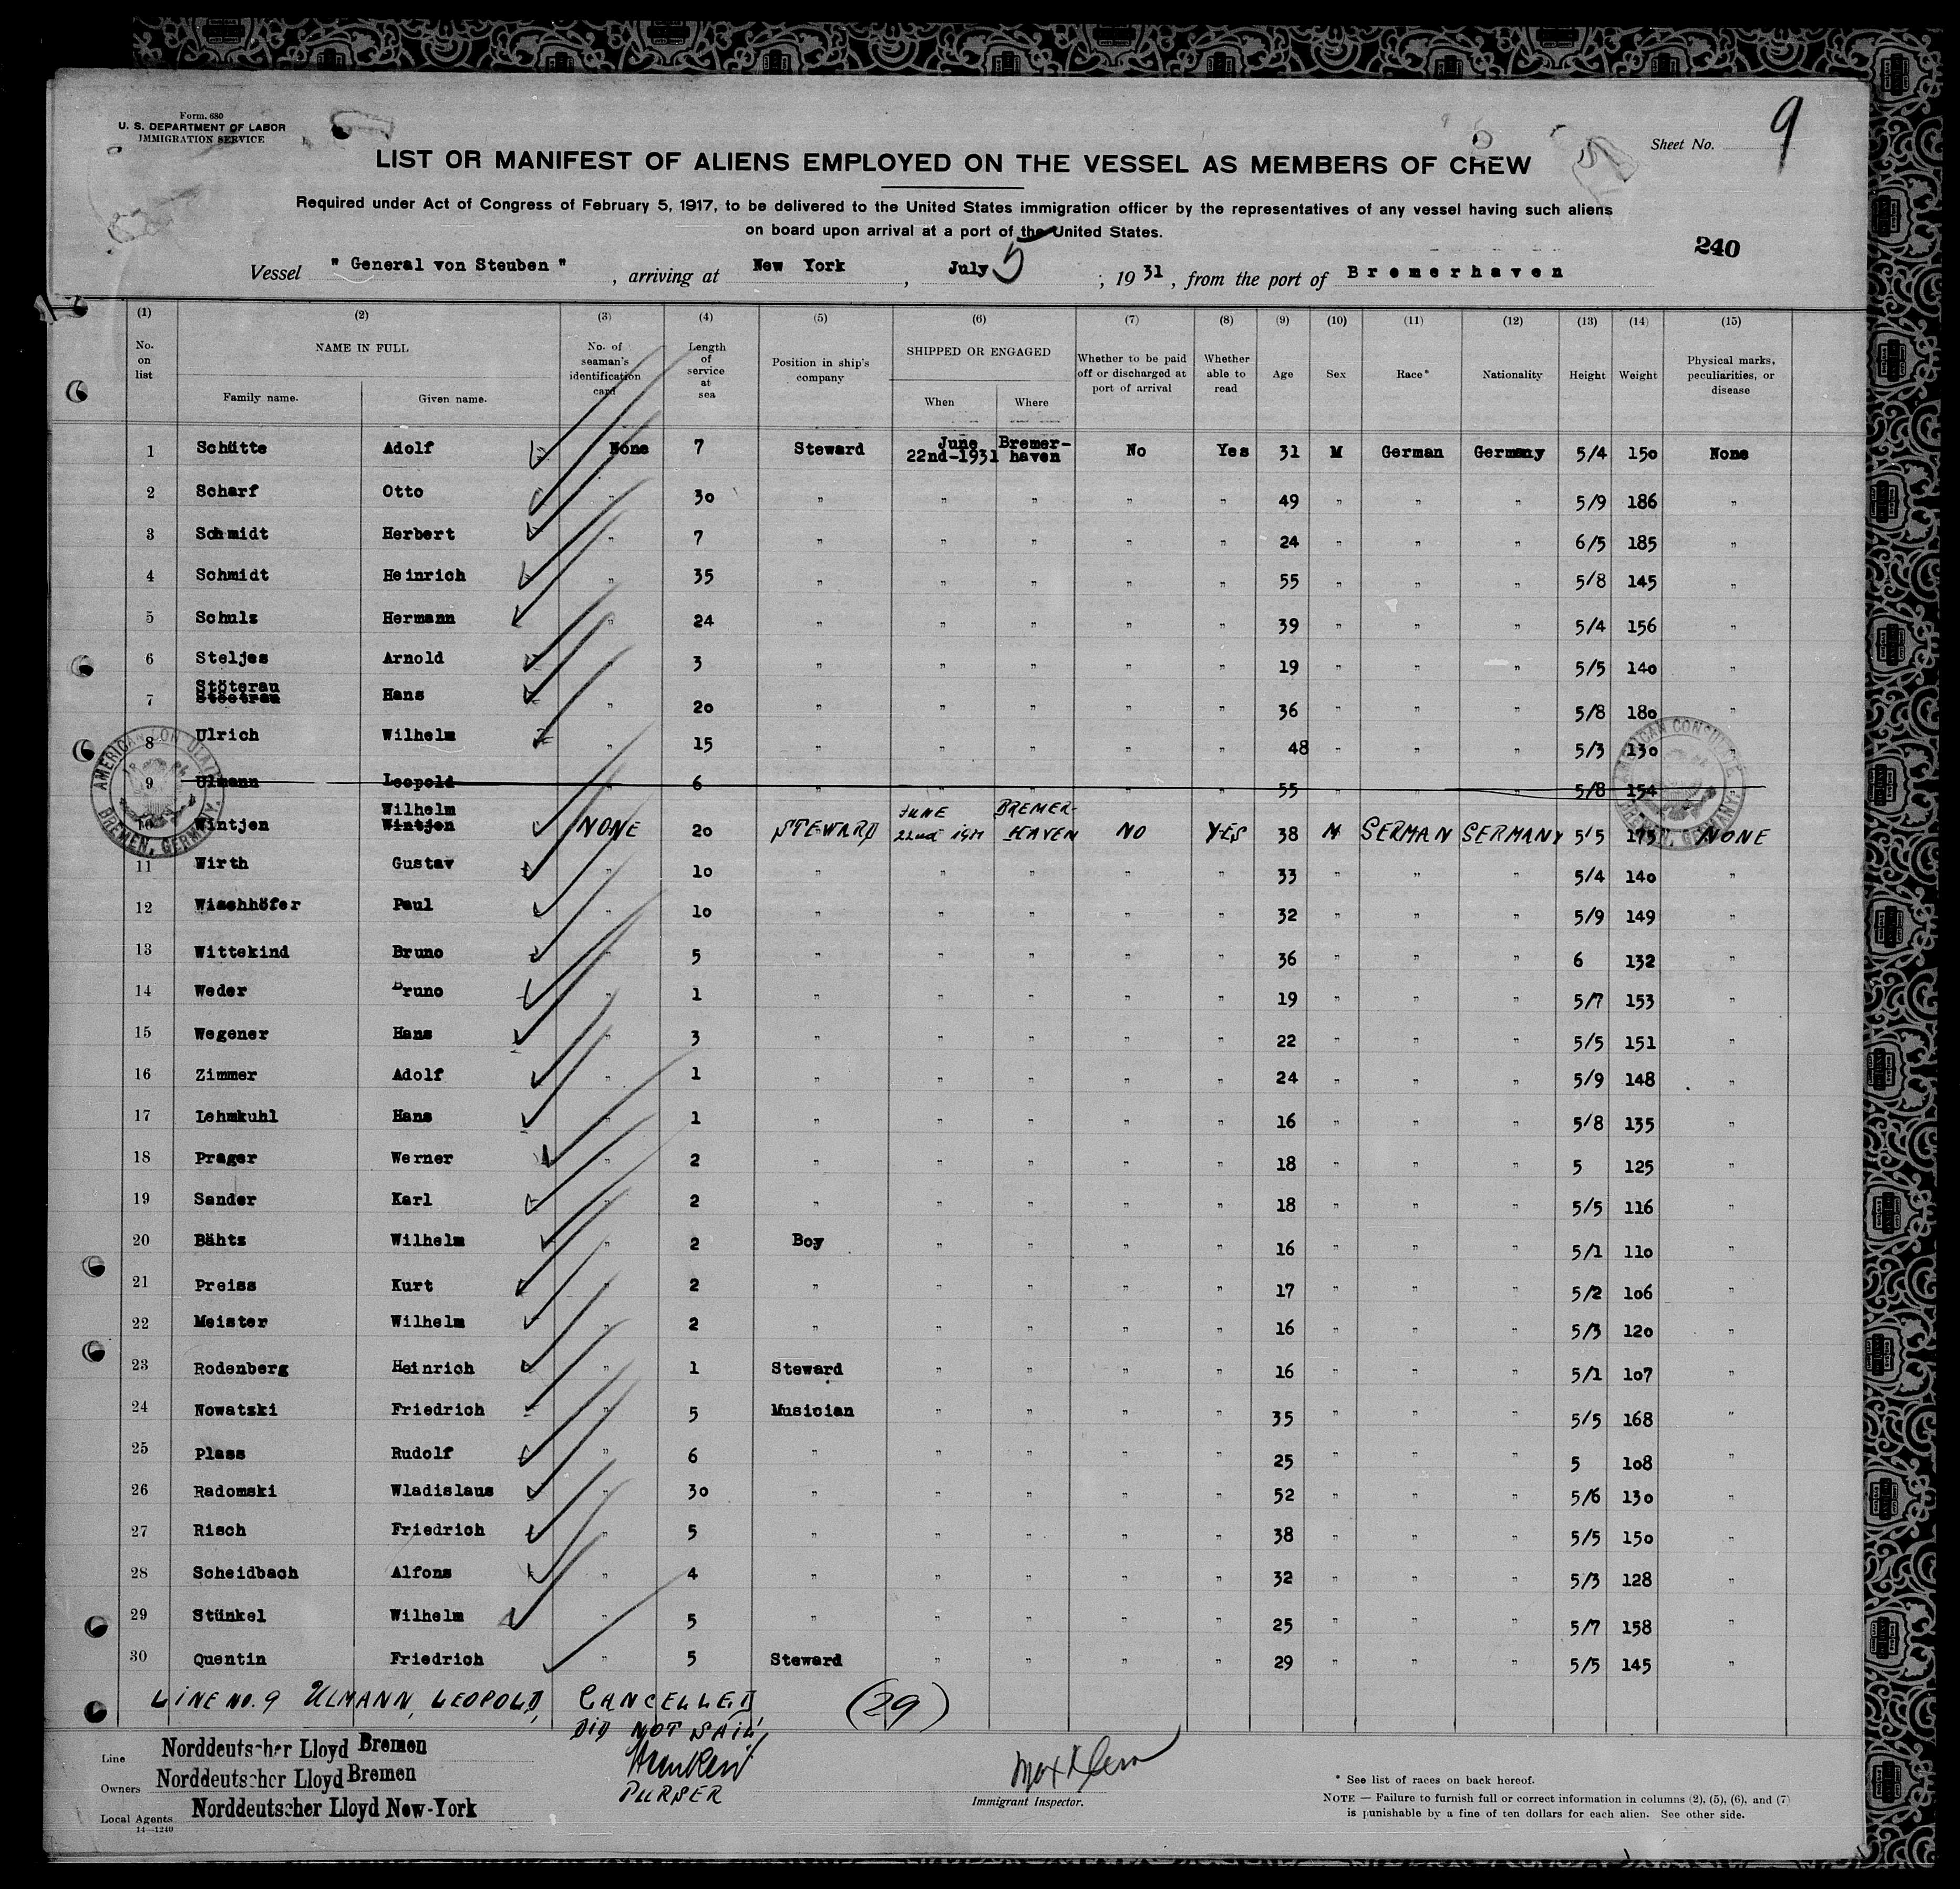 Form. 680
U. S. DEPARTMENT OF LABOR
IMMIGRATION SERVICE
Sheet No. 9
LIST OR MANIFEST OF ALIENS EMPLOYED ON THE VESSEL AS MEMBERS OF CREW
Required under Act of Congress of February 5, 1917, to be delivered to the United States immigration officer by the representatives of any vessel having such aliens
on board upon arrival at a port of the United States.
240
Vessel " General von Steuben " , arriving at New York , July 5 ; 1931 , from the port of Bremerhaven
(1) (2) (3) (4) (5) (6) (7) (8) (9) (10) (11) (12) (13) (14) (15)
No. on list NAME IN FULL Family name. Given name. No. of seaman's identification card Length of service at sea Position in ship's company SHIPPED OR ENGAGED When Where Whether to be paid off or discharged at port of arrival Whether able to read Age Sex Race* Nationality Height Weight Physical marks, peculiarities, or disease
1 Schütte Adolf None 7 Steward June 22nd-1931 Bremer-haven No Yes 31 M German Germany 5/4 150 None
2 Scharf Otto " 30 " " " " " 49 " " " 5/9 186 "
3 Schmidt Herbert " 7 " " " " " 24 " " " 6/5 185 "
4 Schmidt Heinrich " 35 " " " " " 55 " " " 5/8 145 "
5 Schulz Hermann " 24 " " " " " 39 " " " 5/4 156 "
6 Steljes Arnold " 3 " " " " " 19 " " " 5/5 140 "
7 Stöterau Hans " 20 " " " " " 36 " " " 5/8 180 "
8 Ulrich Wilhelm " 15 " " " " " 48 " " " 5/3 130 "
9 Ulmann Leopold 6 " " " " " 55 " " " 5/8 154
10 Wintjen Wilhelm Wintjen NONE 20 STEWARD JUNE 22nd 1931 BREMER-HAVEN NO YES 38 M GERMAN GERMANY 5/5 175 NONE
11 Wirth Gustav " 10 " " " " " 33 " " " 5/4 140 "
12 Wischhöfer Paul " 10 " " " " " 32 " " " 5/9 149 "
13 Wittekind Bruno " 5 " " " " " 36 " " " 6 132 "
14 Weder Bruno " 1 " " " " " 19 " " " 5/7 153 "
15 Wegener Hans " 3 " " " " " 22 " " " 5/5 151 "
16 Zimmer Adolf " 1 " " " " " 24 " " " 5/9 148 "
17 Lehmkuhl Hans " 1 " " " " " 16 " " " 5/8 135 "
18 Prager Werner " 2 " " " " " 18 " " " 5 125 "
19 Sander Karl " 2 " " " " " 18 " " " 5/5 116 "
20 Bähtz Wilhelm " 2 Boy " " " " 16 " " " 5/1 110 "
21 Preiss Kurt " 2 " " " " " 17 " " " 5/2 106 "
22 Meister Wilhelm " 2 " " " " " 16 " " " 5/3 120 "
23 Rodenberg Heinrich " 1 Steward " " " " 16 " " " 5/1 107 "
24 Nowatzki Friedrich " 5 Musician " " " " 35 " " " 5/5 168 "
25 Plass Rudolf " 6 " " " " " 25 " " " 5 108 "
26 Radomski Wladislaus " 30 " " " " " 52 " " " 5/6 130 "
27 Risch Friedrich " 5 " " " " " 38 " " " 5/5 150 "
28 Scheidbach Alfons " 4 " " " " " 32 " " " 5/3 128 "
29 Stünkel Wilhelm " 5 " " " " " 25 " " " 5/7 158 "
30 Quentin Friedrich " 5 Steward " " " " 29 " " " 5/5 145 "
AMERICAN CONSULATE BREMEN, GERMANY.
AMERICAN CONSULATE BREMEN, GERMANY.
LINE NO. 9 ULMANN, LEOPOLD, CANCELLED (29)
DID NOT SAIL,
PURSER
Line Norddeutscher Lloyd Bremen
Owners Norddeutscher Lloyd Bremen
Local Agents Norddeutscher Lloyd New-York
14—1240
Immigrant Inspector.
* See list of races on back hereof.
NOTE — Failure to furnish full or correct information in columns (2), (5), (6), and (7)
is punishable by a fine of ten dollars for each alien. See other side.